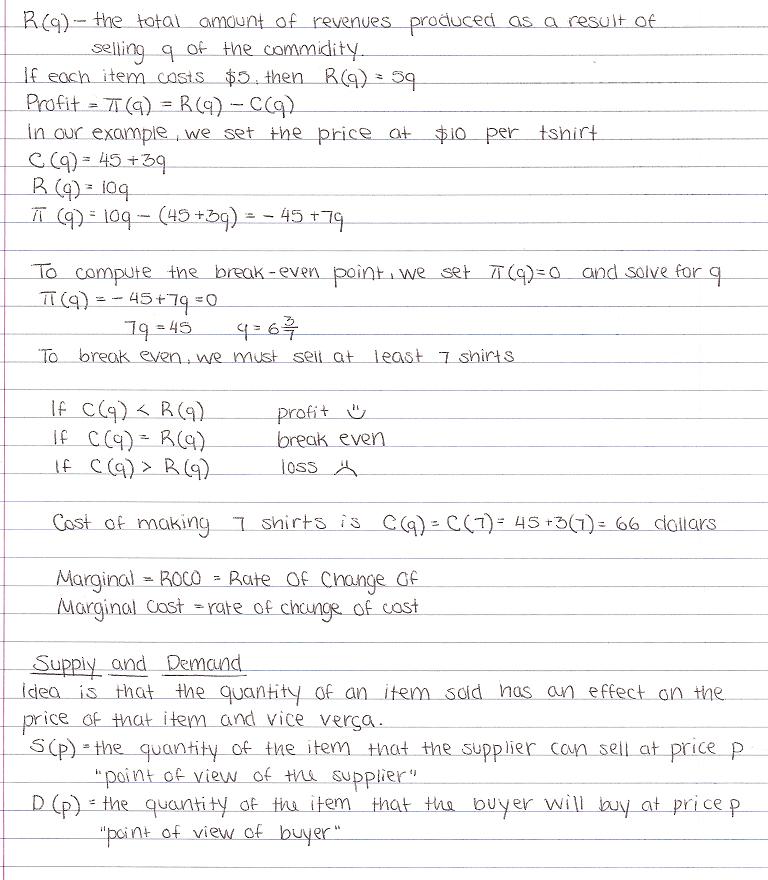 R(q) - the total amount of revenues produced as a result of
selling q of the commidity.
If each item costs $5, then R(q) = 5q
Profit = π(q) = R(q) - C(q)
In our example, we set the price at $10 per tshirt
C(q) = 45 + 3q
R(q) = 10q
π(q) = 10q - (45 + 3q) = - 45 + 7q
To compute the break-even point, we set π(q) = 0 and solve for q
π(q) = - 45 + 7q = 0
7q = 45 q = 6 3/7
To break even, we must sell at least 7 shirts
If C(q) < R(q) profit
If C(q) = R(q) break even
If C(q) > R(q) loss
Cost of making 7 shirts is C(q) = C(7) = 45 + 3(7) = 66 dollars
Marginal = ROCO = Rate Of Change Of
Marginal Cost = rate of change of cost
Supply and Demand
Idea is that the quantity of an item sold has an effect on the
price of that item and vice versa.
S(p) = the quantity of the item that the supplier can sell at price p
"point of view of the supplier"
D(p) = the quantity of the item that the buyer will buy at price p
"point of view of buyer"